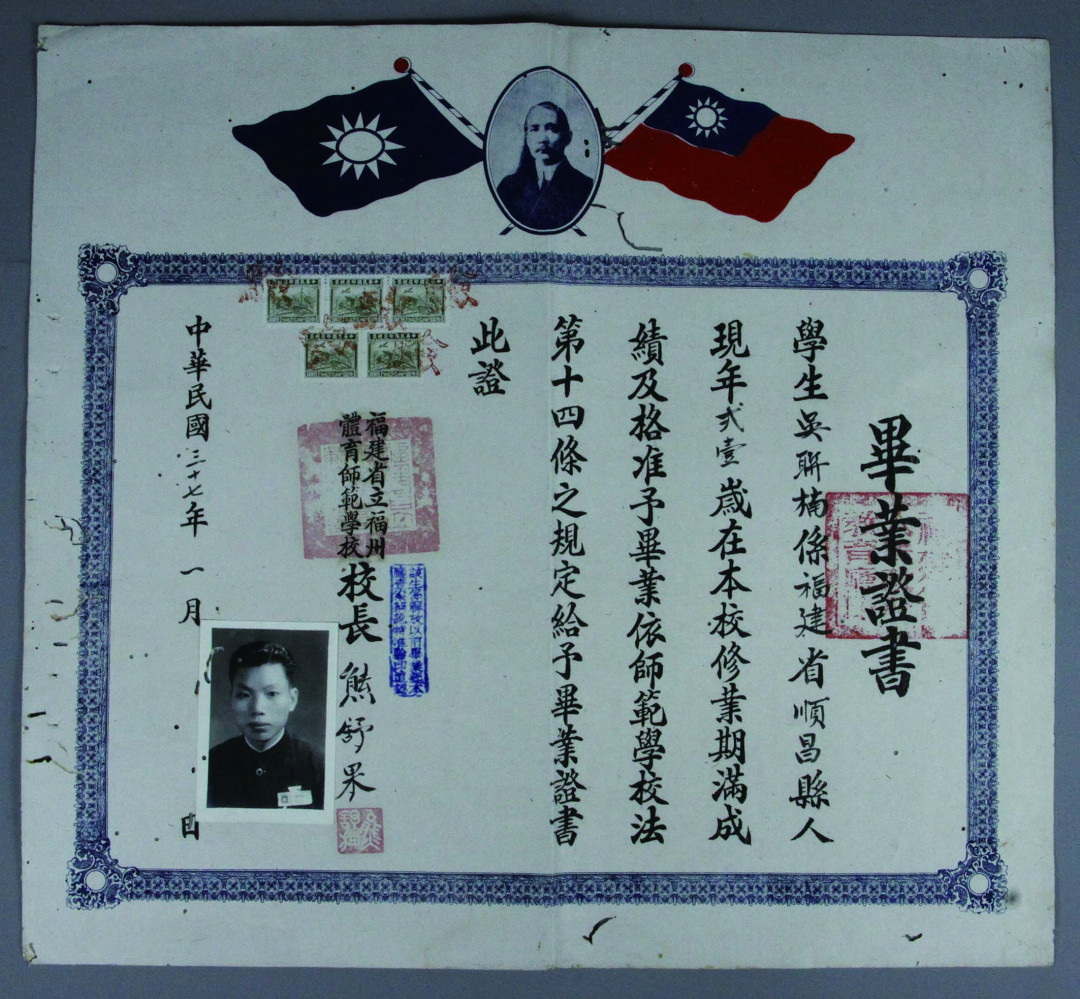 畢業證書
學生吳聯楠係福建省順昌縣人
現年弍壹歲在本校修業期滿成
績及格准予畢業依師範學校法
第十四條之規定給予畢業證書
此證
福建省立福州
體育師範學校
校長熊舒果
中華民國三十七年一月 日